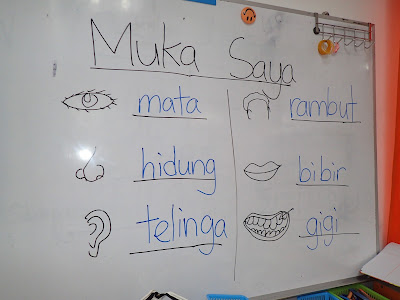 Muka Saya
mata
hidung
telinga
rambut
bibir
gigi